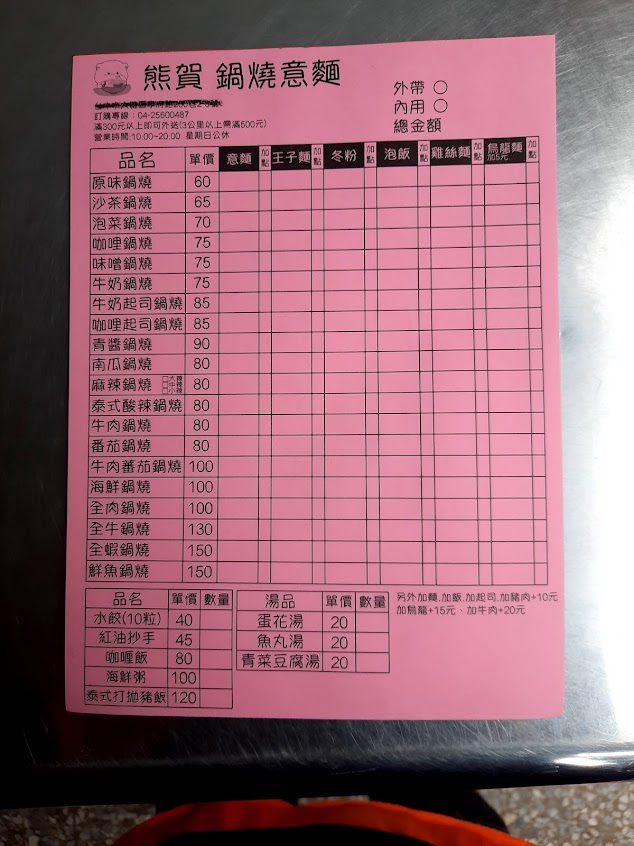 熊賀 鍋燒意麵
外帶
內用
總金額
訂購專線：04-25600487
滿300元以上即可外送(3公里以上需滿500元)
營業時間:10:00~20:00 星期日公休
品名 單價 意麵 加點 王子麵 加點 冬粉 加點 泡飯 加點 雞絲麵 加點 烏龍麵 加5元 加點
原味鍋燒 60
沙茶鍋燒 65
泡菜鍋燒 70
咖哩鍋燒 75
味噌鍋燒 75
牛奶鍋燒 75
牛奶起司鍋燒 85
咖哩起司鍋燒 85
青醬鍋燒 90
南瓜鍋燒 80
麻辣鍋燒 大辣 中辣 小辣 80
泰式酸辣鍋燒 80
牛肉鍋燒 80
番茄鍋燒 80
牛肉蕃茄鍋燒 100
海鮮鍋燒 100
全肉鍋燒 100
全牛鍋燒 130
全蝦鍋燒 150
鮮魚鍋燒 150
品名 單價 數量
水餃(10粒) 40
紅油抄手 45
咖喱飯 80
海鮮粥 100
泰式打拋豬飯 120
湯品 單價 數量
蛋花湯 20
魚丸湯 20
青菜豆腐湯 20
另外加麵,加飯,加起司,加豬肉+10元
加烏龍+15元、加牛肉+20元